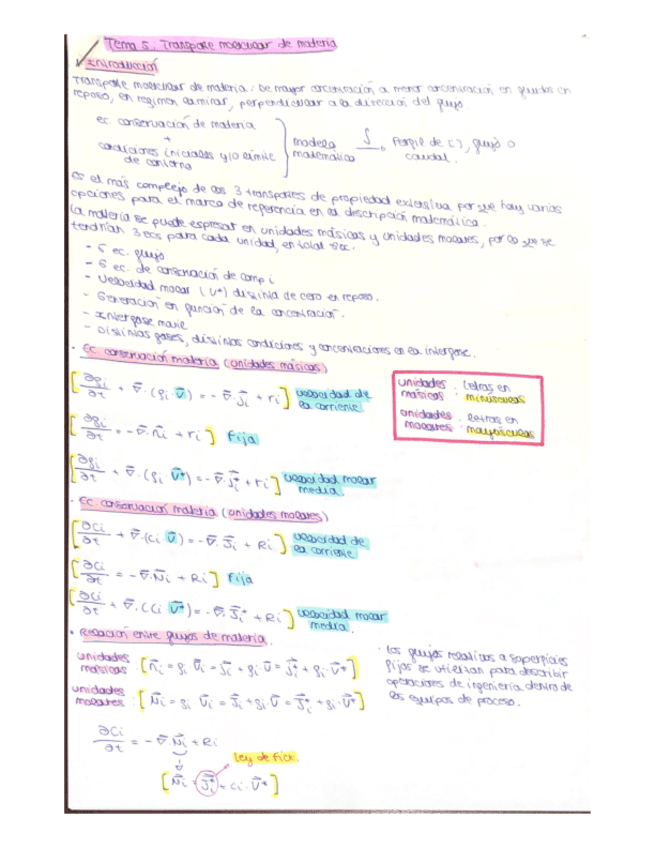 Tema 5. Transporte molecular de materia
Introducción
Transporte molecular de materia: De mayor concentración a menor concentración en fluidos en
reposo, en regimen laminar, perpendicular a la dirección del flujo.
ec. conservación de materia
+
condiciones iniciales y/o límite
de contorno
modelo
matemático
∫
→ Perfil de [ ], flujo o
caudal.
Es el más complejo de los 3 transportes de propiedad extensiva por que hay varias
opciones para el marco de referencia en la descripción matemática.
La materia se puede expresar en unidades másicas y unidades molares, por lo que se
tendrían 3 ecs para cada unidad, en total
- 6 ec. flujo
- 6 ec. de conservación de comp i
- Velocidad molar (V*) distinta de cero en reposo.
- Generación en función de la concentración.
- Interfase movil
- Distintas fases, distintas condiciones y concentraciones en la interfase.
· Ec. conservación materia (unidades másicas)
[∂ρi/∂t + ∇·(ρi v̄) = -∇·j̄i + ri] velocidad de
la corriente
[∂ρi/∂t = -∇·n̄i + ri] Fija
[∂ρi/∂t + ∇·(ρi v̄*) = -∇·j̄i* + ri] velocidad molar
media
unidades
másicas : Letras en
minúsculas
unidades
molares : Letras en
mayúsculas
· Ec. conservación materia (unidades molares)
[∂Ci/∂t + ∇·(Ci v̄) = -∇·J̄i + Ri] velocidad de
la corriente
[∂Ci/∂t = -∇·N̄i + Ri] Fija
[∂Ci/∂t + ∇·(Ci v̄*) = -∇·J̄i* + Ri] velocidad molar
media.
· Relación entre flujos de materia.
unidades
másicas : [n̄i = ρi v̄i = j̄i + ρi v̄ = j̄i* + ρi·v̄*]
unidades
molares : [N̄i = ρi v̄i = J̄i + ρi·v̄ = J̄i* + ρi·v̄*]
· Los flujos relativos a superficies
fijas se utilizan para describir
operaciones de ingeniería dentro de
los equipos de proceso.
∂Ci/∂t = -∇·N̄i + Ri
Ley de Fick.
[N̄i = J̄i* + Ci·v̄*]